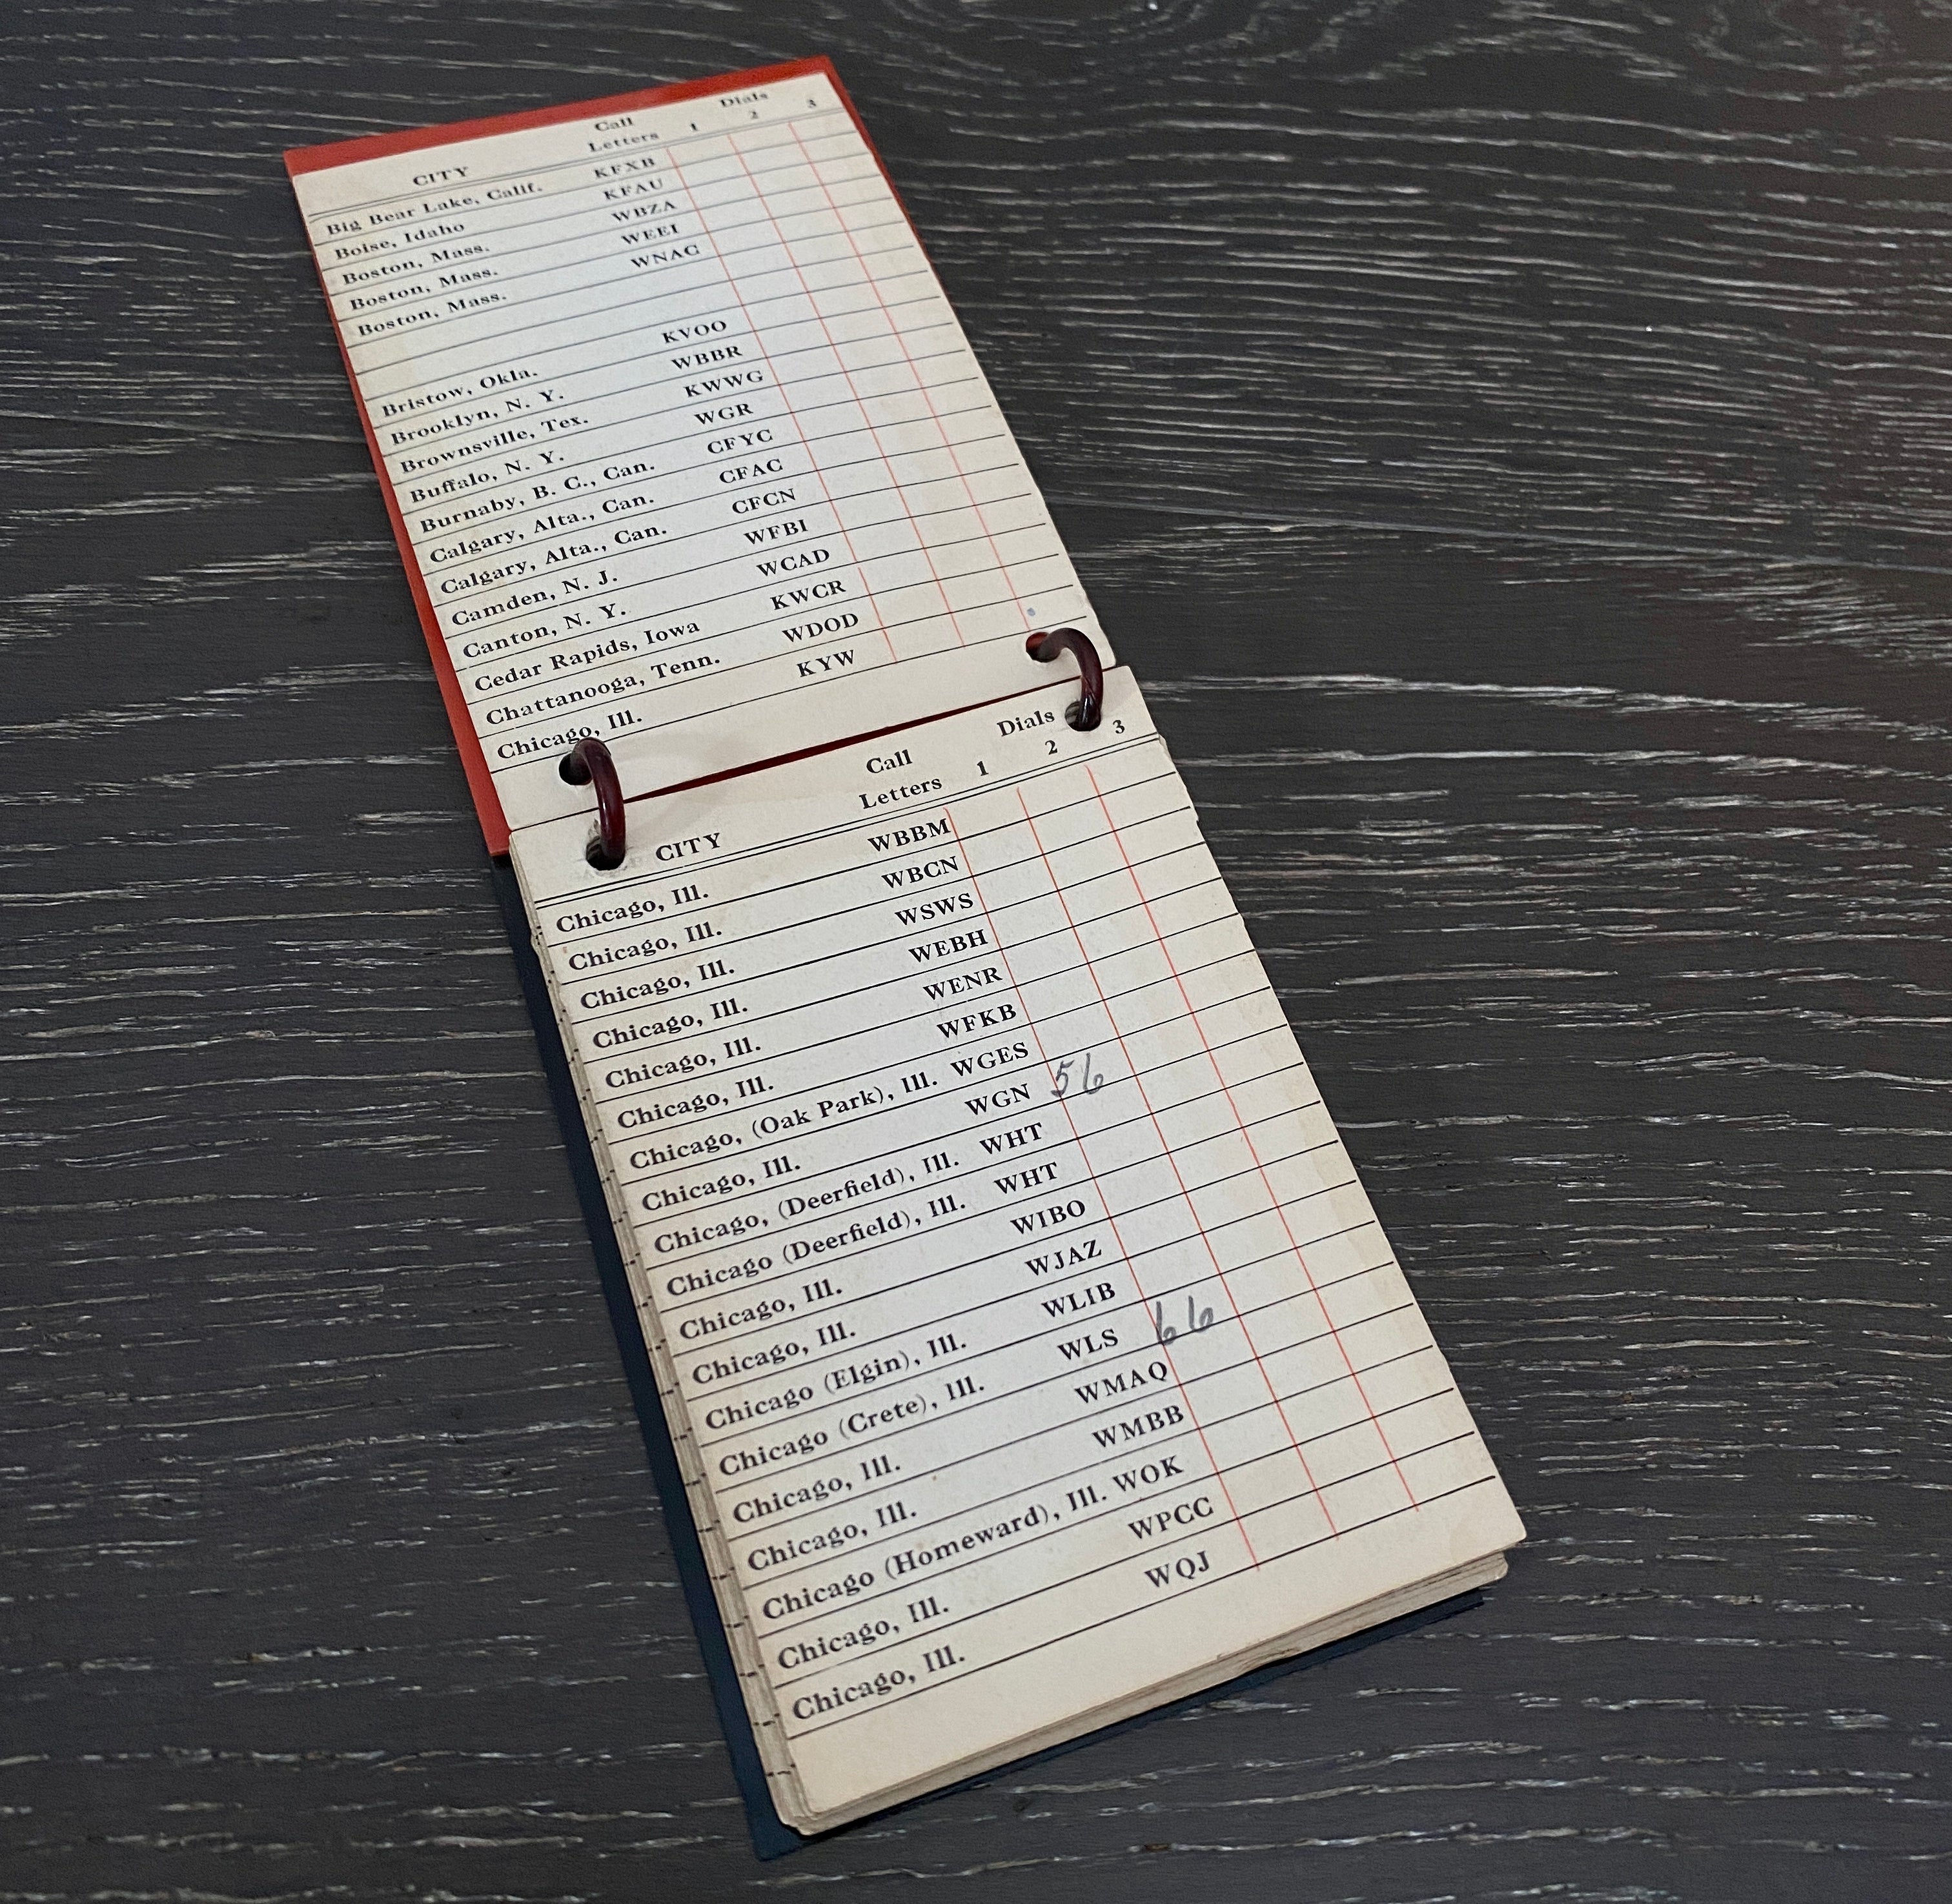 Dials
Call
CITY Letters 1 2 3
Big Bear Lake, Calif. KFXB
Boise, Idaho KFAU
Boston, Mass. WBZA
Boston, Mass. WEEI
Boston, Mass. WNAC
Bristow, Okla. KVOO
Brooklyn, N. Y. WBBR
Brownsville, Tex. KWWG
Buffalo, N. Y. WGR
Burnaby, B. C., Can. CFYC
Calgary, Alta., Can. CFAC
Calgary, Alta., Can. CFCN
Camden, N. J. WFBI
Canton, N. Y. WCAD
Cedar Rapids, Iowa KWCR
Chattanooga, Tenn. WDOD
Chicago, Ill. KYW
Call Dials
CITY Letters 1 2 3
Chicago, Ill. WBBM
Chicago, Ill. WBCN
Chicago, Ill. WSWS
Chicago, Ill. WEBH
Chicago, Ill. WENR
Chicago, Ill. WFKB
Chicago, (Oak Park), Ill. WGES
Chicago, Ill. WGN 56
Chicago, (Deerfield), Ill. WHT
Chicago (Deerfield), Ill. WHT
Chicago, Ill. WIBO
Chicago, Ill. WJAZ
Chicago (Elgin), Ill. WLIB
Chicago (Crete), Ill. WLS 66
Chicago, Ill. WMAQ
Chicago, Ill. WMBB
Chicago (Homeward), Ill. WOK
Chicago, Ill. WPCC
Chicago, Ill. WQJ